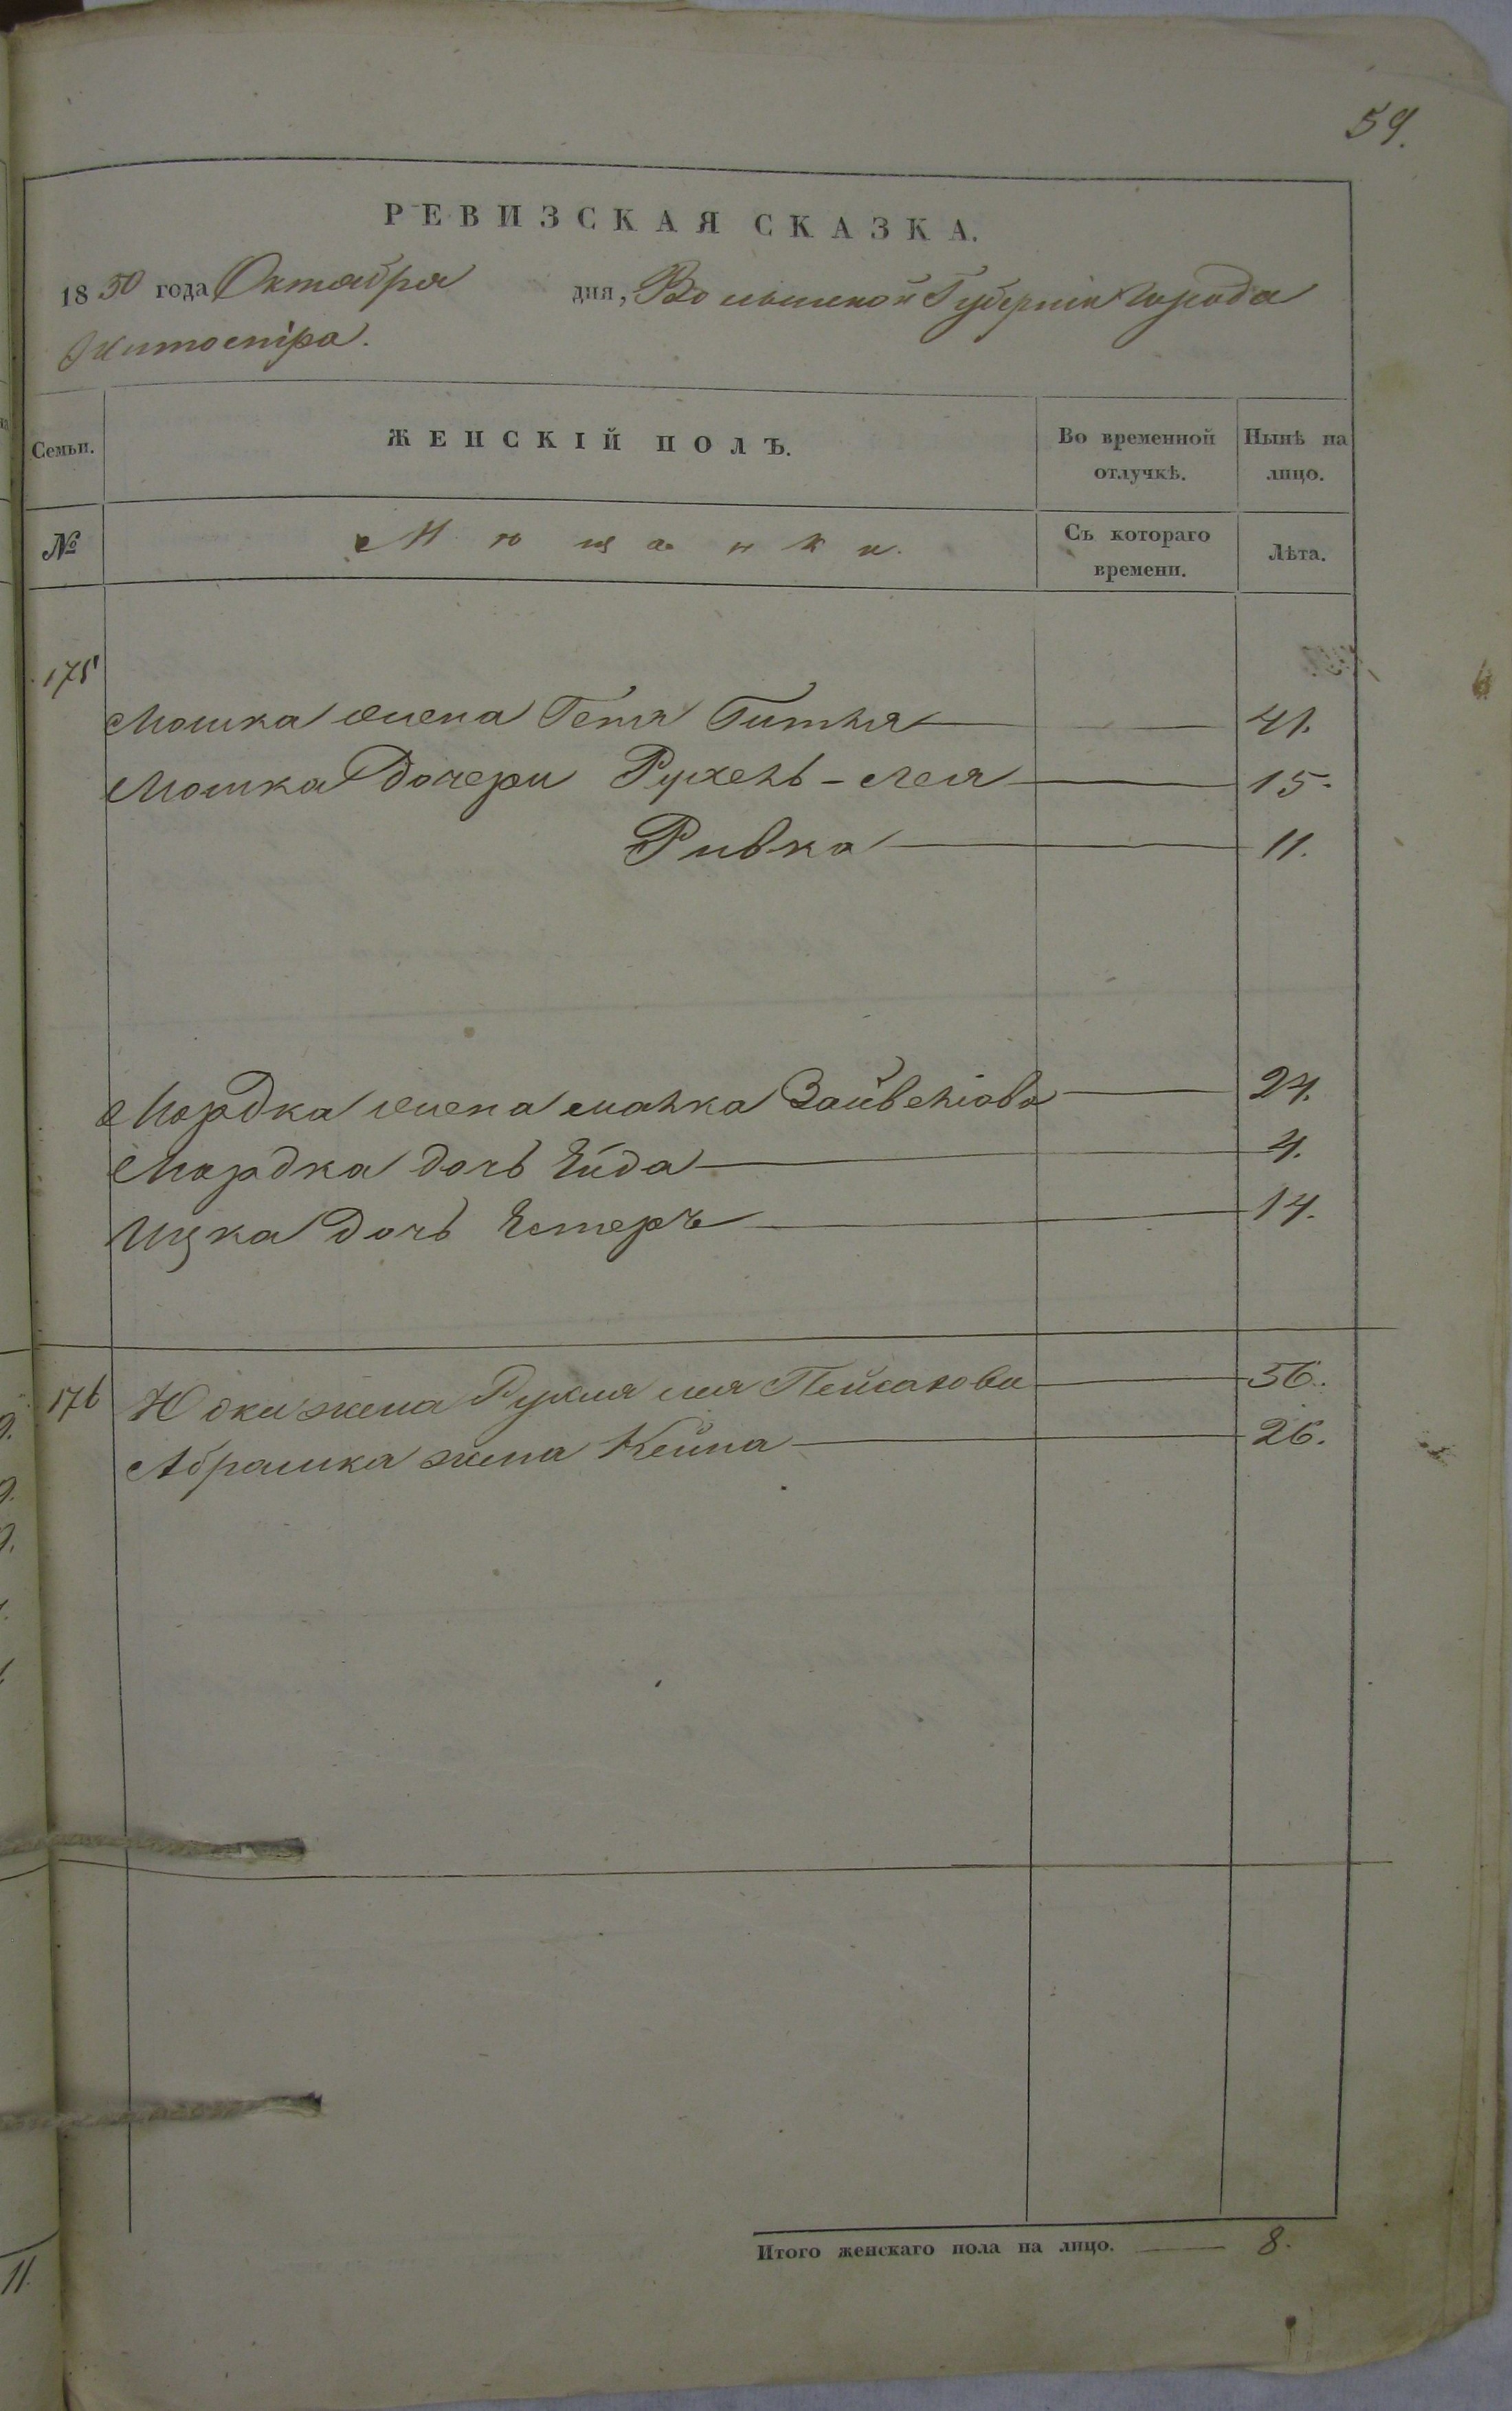 59.
РЕВИЗСКАЯ СКАЗКА.
1850 года Октабря дня, Волынской Губерніи города
Житоміра.
Семьи. ЖЕНСКІЙ ПОЛЪ. Во временной отлучкѣ. Нынѣ на лицо.
№ Мѣщанки. Съ котораго времени. Лѣта.
175
Мошка жена Геня 41.
Мошка дочери Рухель-Лея 15.
Ривка 11.
Мордка жена Малка 24.
Мордка дочь Ейда 4.
Ицка дочь Естеръ 14.
176 жена Рухля Лея Пейсахова 56.
Абрамка жена Кейла 26.
Итого женскаго пола на лицо. 8.
11.